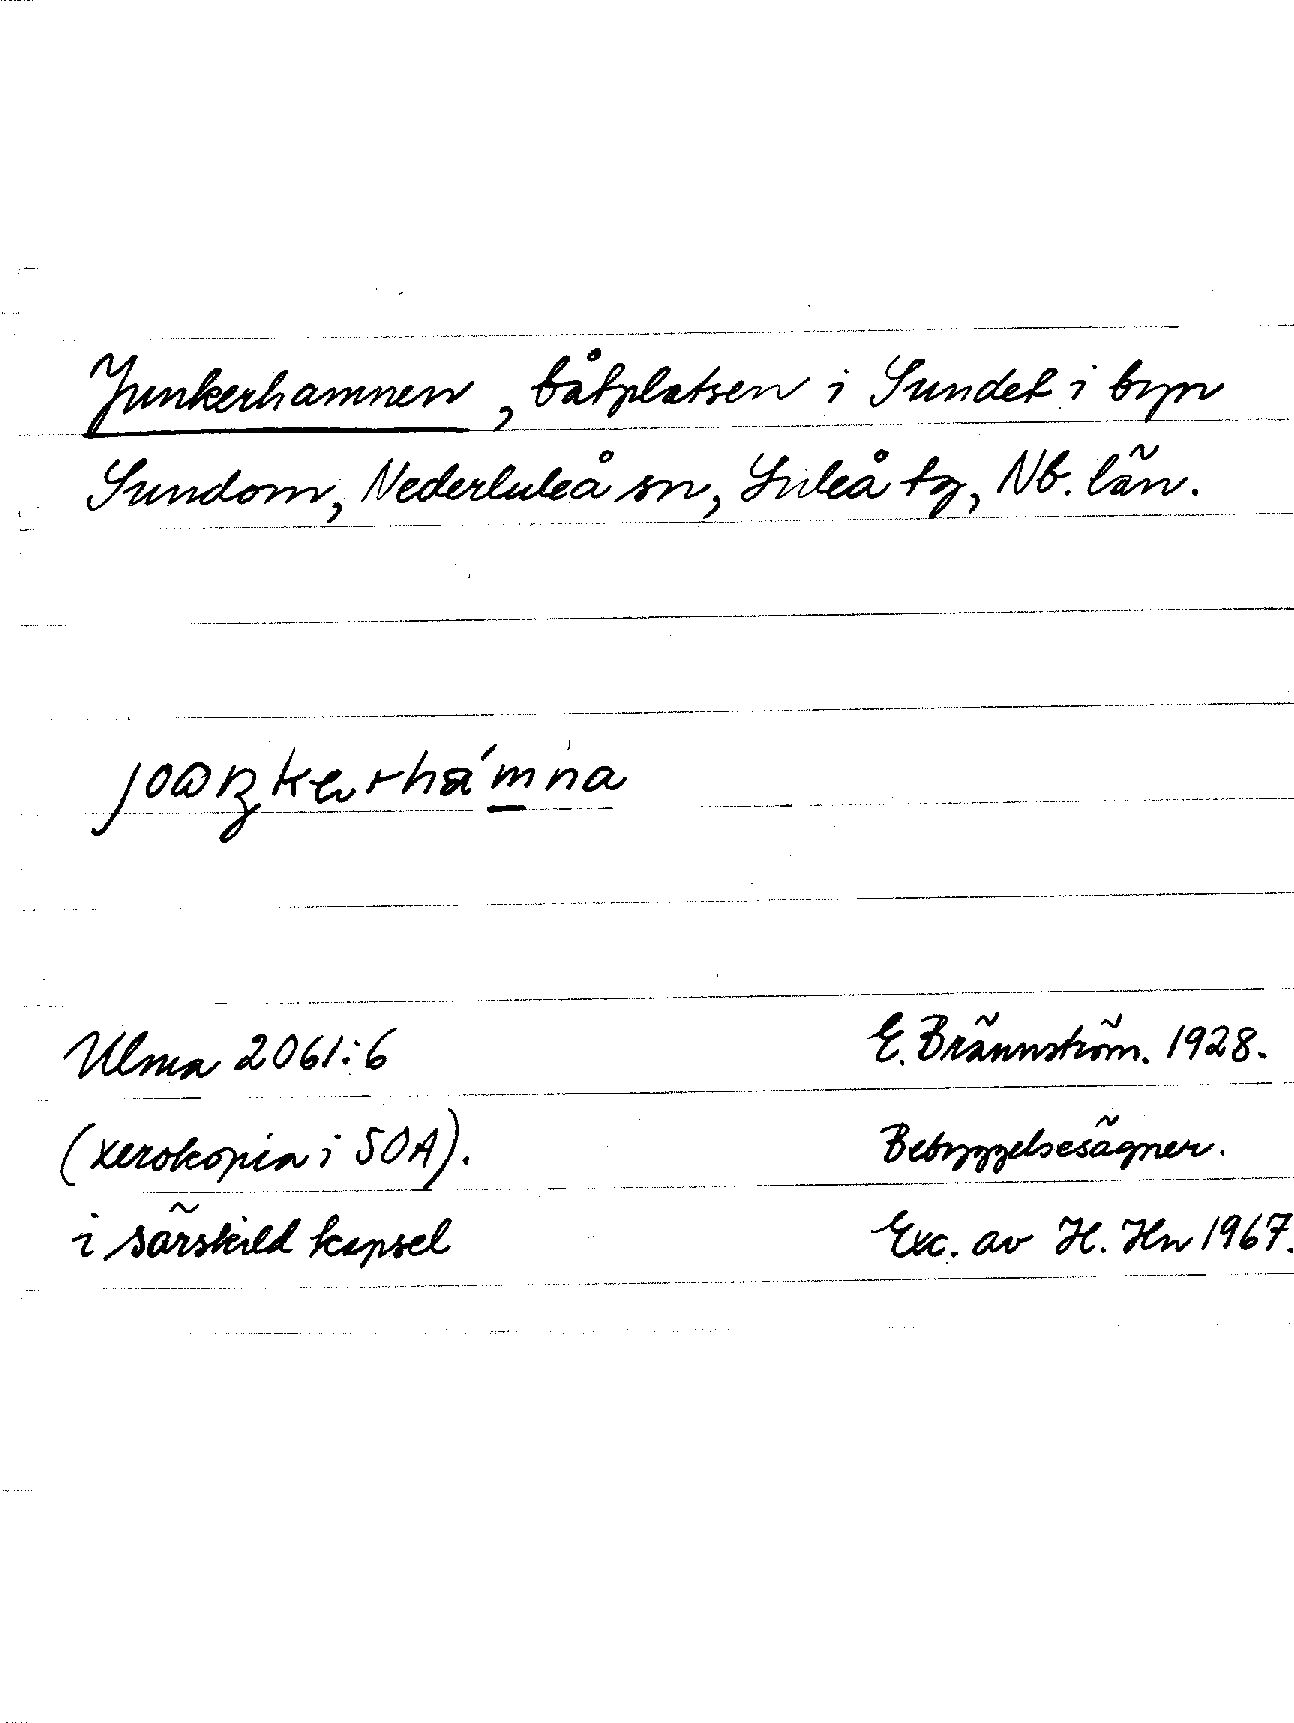 Junkerhamnen, båtplatsen i Sundet i byn
Sundom, Nederluleå sn, Luleå tg, Nb. län.
Ulma 2061:6
(xerokopia i SOA).
i särskild kapsel
E. Brännström. 1928.
Bebyggelsesägner.
Exc. av H. Hn 1967.